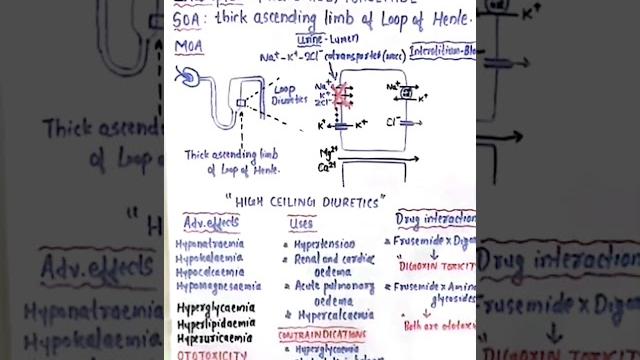 SOA: thick ascending limb of Loop of Henle.
MOA
Urine-Lumen
Na+-K+-2Cl- cotransporter
Interstitium-Blo
Na+
K+
2Cl-
Na+
K+
Loop
Diuretics
K+
K+
Cl-
Thick ascending limb
of Loop of Henle.
Mg2+
Ca2+
"HIGH CEILING DIURETICS"
Adv. effects
Hyponatraemia
Hypokalaemia
Hypocalcaemia
Hypomagnesaemia
Hyperglycaemia
Hyperlipidaemia
Hyperuricaemia
OTOTOXICITY
Uses
Hypertension
Renal and cardiac
oedema
Acute pulmonary
oedema
Hypercalcaemia
CONTRAINDICATIONS
Hyperglycaemia
Drug interaction
Frusemide x Digo
DIGOXIN TOXICITY
Frusemide x Amino
glycosides
Both are ototox
"H
Adv. effects
Hyponatraemia
Hypokalaemia
Drug interaction
rusemide x Digo